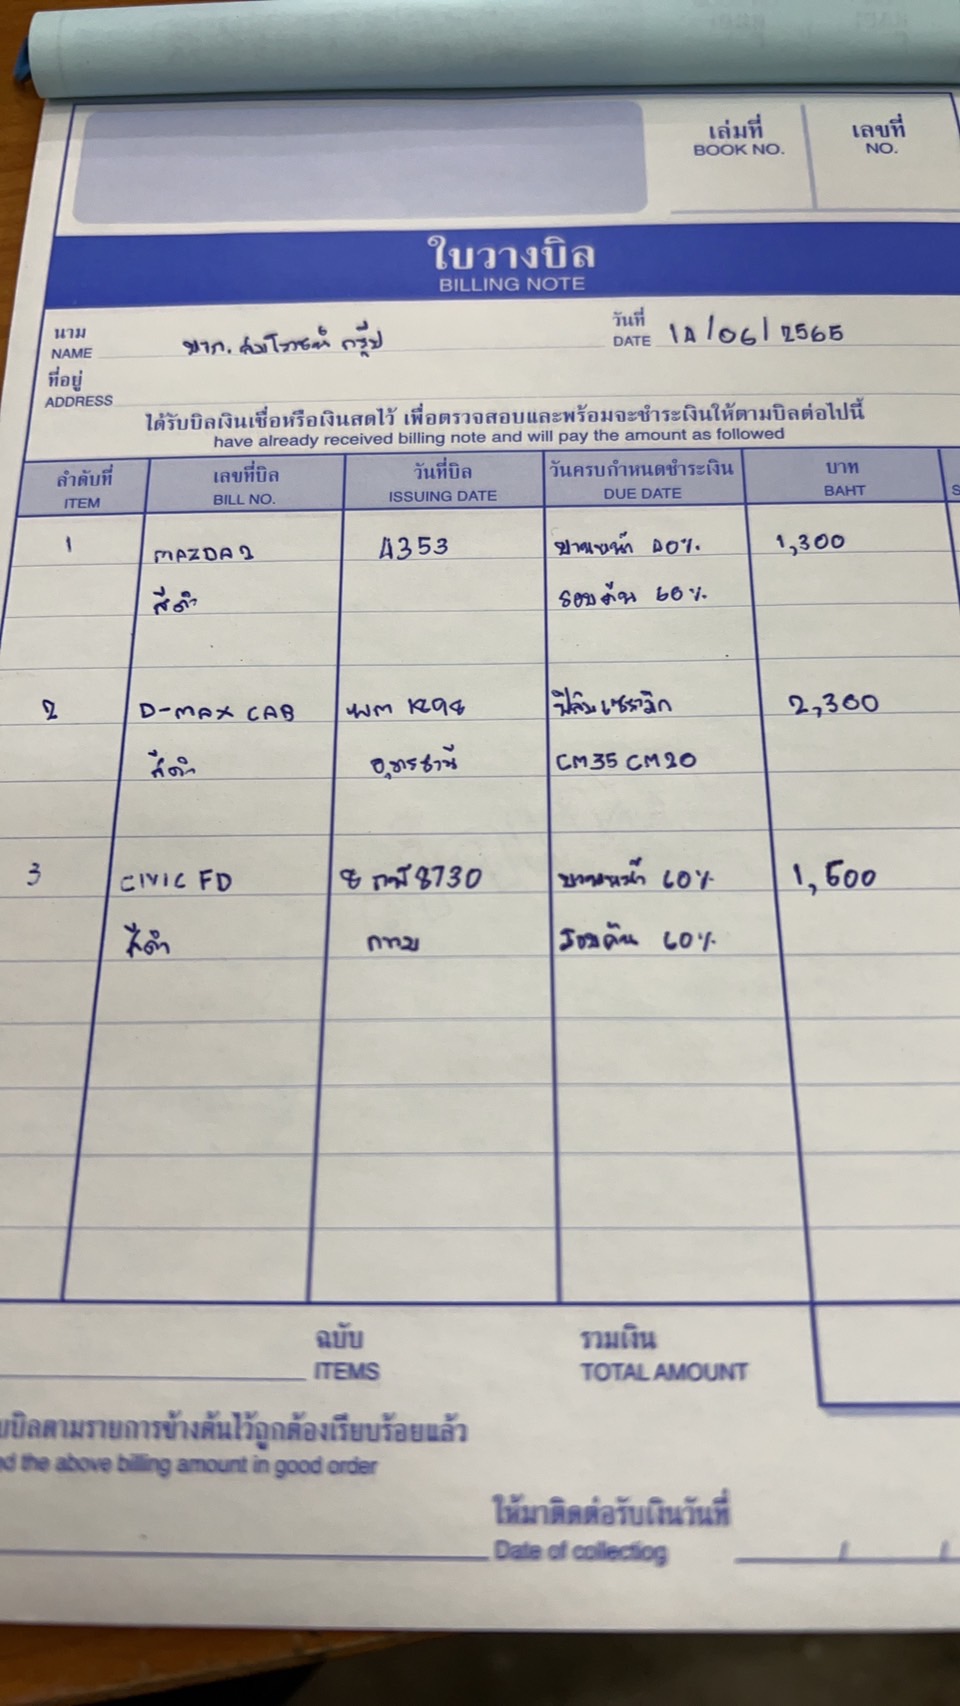 เล่มที่ เลขที่
BOOK NO. NO.
ใบวางบิล
BILLING NOTE
นาม วันที่
NAME DATE 14/06/2565
ที่อยู่
ADDRESS
ได้รับบิลเงินเชื่อหรือเงินสดไว้ เพื่อตรวจสอบและพร้อมจะชำระเงินให้ตามบิลต่อไปนี้
have already received billing note and will pay the amount as followed
ลำดับที่ เลขที่บิล วันที่บิล วันครบกำหนดชำระเงิน บาท
ITEM BILL NO. ISSUING DATE DUE DATE BAHT S
1 MAZDA 2 4353 บานหน้า 40% 1,300
สีดำ รอบคัน 60%
2 D-MAX CAB ฟิล์มเซรามิก 2,300
สีดำ อุดรธานี CM35 CM20
3 CIVIC FD 8730 บานหน้า 60% 1,500
สีดำ กทม รอบคัน 60%
ฉบับ รวมเงิน
ITEMS TOTAL AMOUNT
บิลตามรายการข้างต้นไว้ถูกต้องเรียบร้อยแล้ว
the above billing amount in good order
ให้มาติดต่อรับเงินวันที่
Date of collecting / /